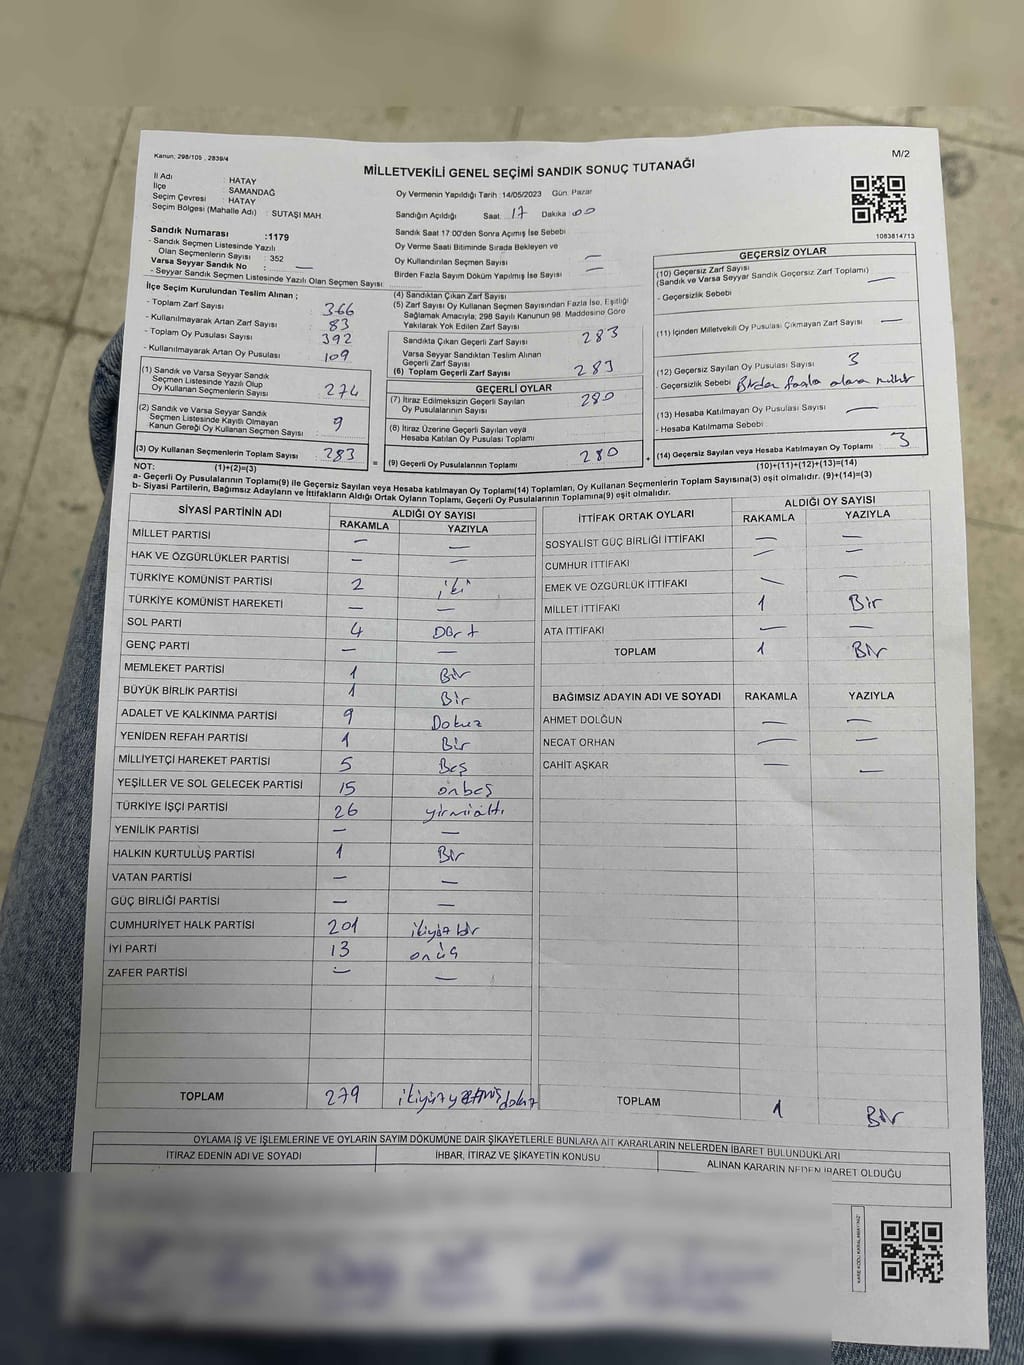 Kanun, 298/105 , 2839/4
M/2
MİLLETVEKİLİ GENEL SEÇİMİ SANDIK SONUÇ TUTANAĞI
İl Adı : HATAY
İlçe : SAMANDAĞ
Seçim Çevresi : HATAY
Seçim Bölgesi (Mahalle Adı) : SUTAŞI MAH.
Oy Vermenin Yapıldığı Tarih :14/05/2023 Gün: Pazar
Sandığın Açıldığı Saat: 17 Dakika : 00
1083814713
Sandık Numarası :1179
- Sandık Seçmen Listesinde Yazılı
Olan Seçmenlerin Sayısı : 352
Varsa Seyyar Sandık No : —
- Seyyar Sandık Seçmen Listesinde Yazılı Olan Seçmen Sayısı:
Sandık Saat 17:00'den Sonra Açımış İse Sebebi
Oy Verme Saati Bitiminde Sırada Bekleyen ve
Oy Kullandırılan Seçmen Sayısı —
Birden Fazla Sayım Döküm Yapılmış İse Sayısı : —
İlçe Seçim Kurulundan Teslim Alınan ;
- Toplam Zarf Sayısı : 366
- Kullanılmayarak Artan Zarf Sayısı : 83
- Toplam Oy Pusulası Sayısı : 392
- Kullanılmayarak Artan Oy Pusulası : 109
(1) Sandık ve Varsa Seyyar Sandık
Seçmen Listesinde Yazılı Olup
Oy Kullanan Seçmenlerin Sayısı : 274
(2) Sandık ve Varsa Seyyar Sandık
Seçmen Listesinde Kayıtlı Olmayan
Kanun Gereği Oy Kullanan Seçmen Sayısı : 9
(3) Oy Kullanan Seçmenlerin Toplam Sayısı : 283 =
(4) Sandıktan Çıkan Zarf Sayısı
(5) Zarf Sayısı Oy Kullanan Seçmen Sayısından Fazla İse, Eşitliği
Sağlamak Amacıyla; 298 Sayılı Kanunun 98. Maddesine Göre
Yakılarak Yok Edilen Zarf Sayısı
Sandıkta Çıkan Geçerli Zarf Sayısı : 283
Varsa Seyyar Sandıktan Teslim Alınan
Geçerli Zarf Sayısı
(6) Toplam Geçerli Zarf Sayısı : 283
GEÇERLİ OYLAR
(7) İtiraz Edilmeksizin Geçerli Sayılan
Oy Pusulalarının Sayısı : 280
(8) İtiraz Üzerine Geçerli Sayılan veya
Hesaba Katılan Oy Pusulası Toplamı :
(9) Geçerli Oy Pusulalarının Toplamı : 280 +
GEÇERSİZ OYLAR
(10) Geçersiz Zarf Sayısı
(Sandık ve Varsa Seyyar Sandık Geçersiz Zarf Toplamı) : —
- Geçersizlik Sebebi :
(11) İçinden Milletvekili Oy Pusulası Çıkmayan Zarf Sayısı : —
(12) Geçersiz Sayılan Oy Pusulası Sayısı : 3
- Geçersizlik Sebebi : Birden fazla alana mühür
(13) Hesaba Katılmayan Oy Pusulası Sayısı : —
- Hesaba Katılmama Sebebi :
(14) Geçersiz Sayılan veya Hesaba Katılmayan Oy Toplamı : 3
NOT: (1)+(2)=(3) (10)+(11)+(12)+(13)=(14)
a- Geçerli Oy Pusulalarının Toplamı(9) ile Geçersiz Sayılan veya Hesaba katılmayan Oy Toplamı(14) Toplamları, Oy Kullanan Seçmenlerin Toplam Sayısına(3) eşit olmalıdır. (9)+(14)=(3)
b- Siyasi Partilerin, Bağımsız Adayların ve İttifakların Aldığı Ortak Oyların Toplamı, Geçerli Oy Pusulalarının Toplamına(9) eşit olmalıdır.
SİYASİ PARTİNİN ADI ALDIĞI OY SAYISI
RAKAMLA YAZIYLA
MİLLET PARTİSİ — —
HAK VE ÖZGÜRLÜKLER PARTİSİ — —
TÜRKİYE KOMÜNİST PARTİSİ 2 iki
TÜRKİYE KOMÜNİST HAREKETİ — —
SOL PARTİ 4 Dört
GENÇ PARTİ — —
MEMLEKET PARTİSİ 1 Bir
BÜYÜK BİRLİK PARTİSİ 1 Bir
ADALET VE KALKINMA PARTİSİ 9 Dokuz
YENİDEN REFAH PARTİSİ 1 Bir
MİLLİYETÇİ HAREKET PARTİSİ 5 Beş
YEŞİLLER VE SOL GELECEK PARTİSİ 15 onbeş
TÜRKİYE İŞÇİ PARTİSİ 26 yirmialtı
YENİLİK PARTİSİ — —
HALKIN KURTULUŞ PARTİSİ 1 Bir
VATAN PARTİSİ — —
GÜÇ BİRLİĞİ PARTİSİ — —
CUMHURİYET HALK PARTİSİ 201 ikiyüz bir
İYİ PARTİ 13 onüç
ZAFER PARTİSİ — —
TOPLAM 279 ikiyüz yetmiş dokuz
İTTİFAK ORTAK OYLARI ALDIĞI OY SAYISI
RAKAMLA YAZIYLA
SOSYALİST GÜÇ BİRLİĞİ İTTİFAKI — —
CUMHUR İTTİFAKI — —
EMEK VE ÖZGÜRLÜK İTTİFAKI — —
MİLLET İTTİFAKI 1 Bir
ATA İTTİFAKI — —
TOPLAM 1 Bir
BAĞIMSIZ ADAYIN ADI VE SOYADI RAKAMLA YAZIYLA
AHMET DOLĞUN — —
NECAT ORHAN — —
CAHİT AŞKAR — —
TOPLAM 1 Bir
OYLAMA İŞ VE İŞLEMLERİNE VE OYLARIN SAYIM DÖKÜMÜNE DAİR ŞİKAYETLERLE BUNLARA AİT KARARLARIN NELERDEN İBARET BULUNDUKLARI
İTİRAZ EDENİN ADI VE SOYADI İHBAR, İTİRAZ VE ŞİKAYETİN KONUSU ALINAN KARARIN NEDEN İBARET OLDUĞU
KARE KODU KARALAMAYINIZ!